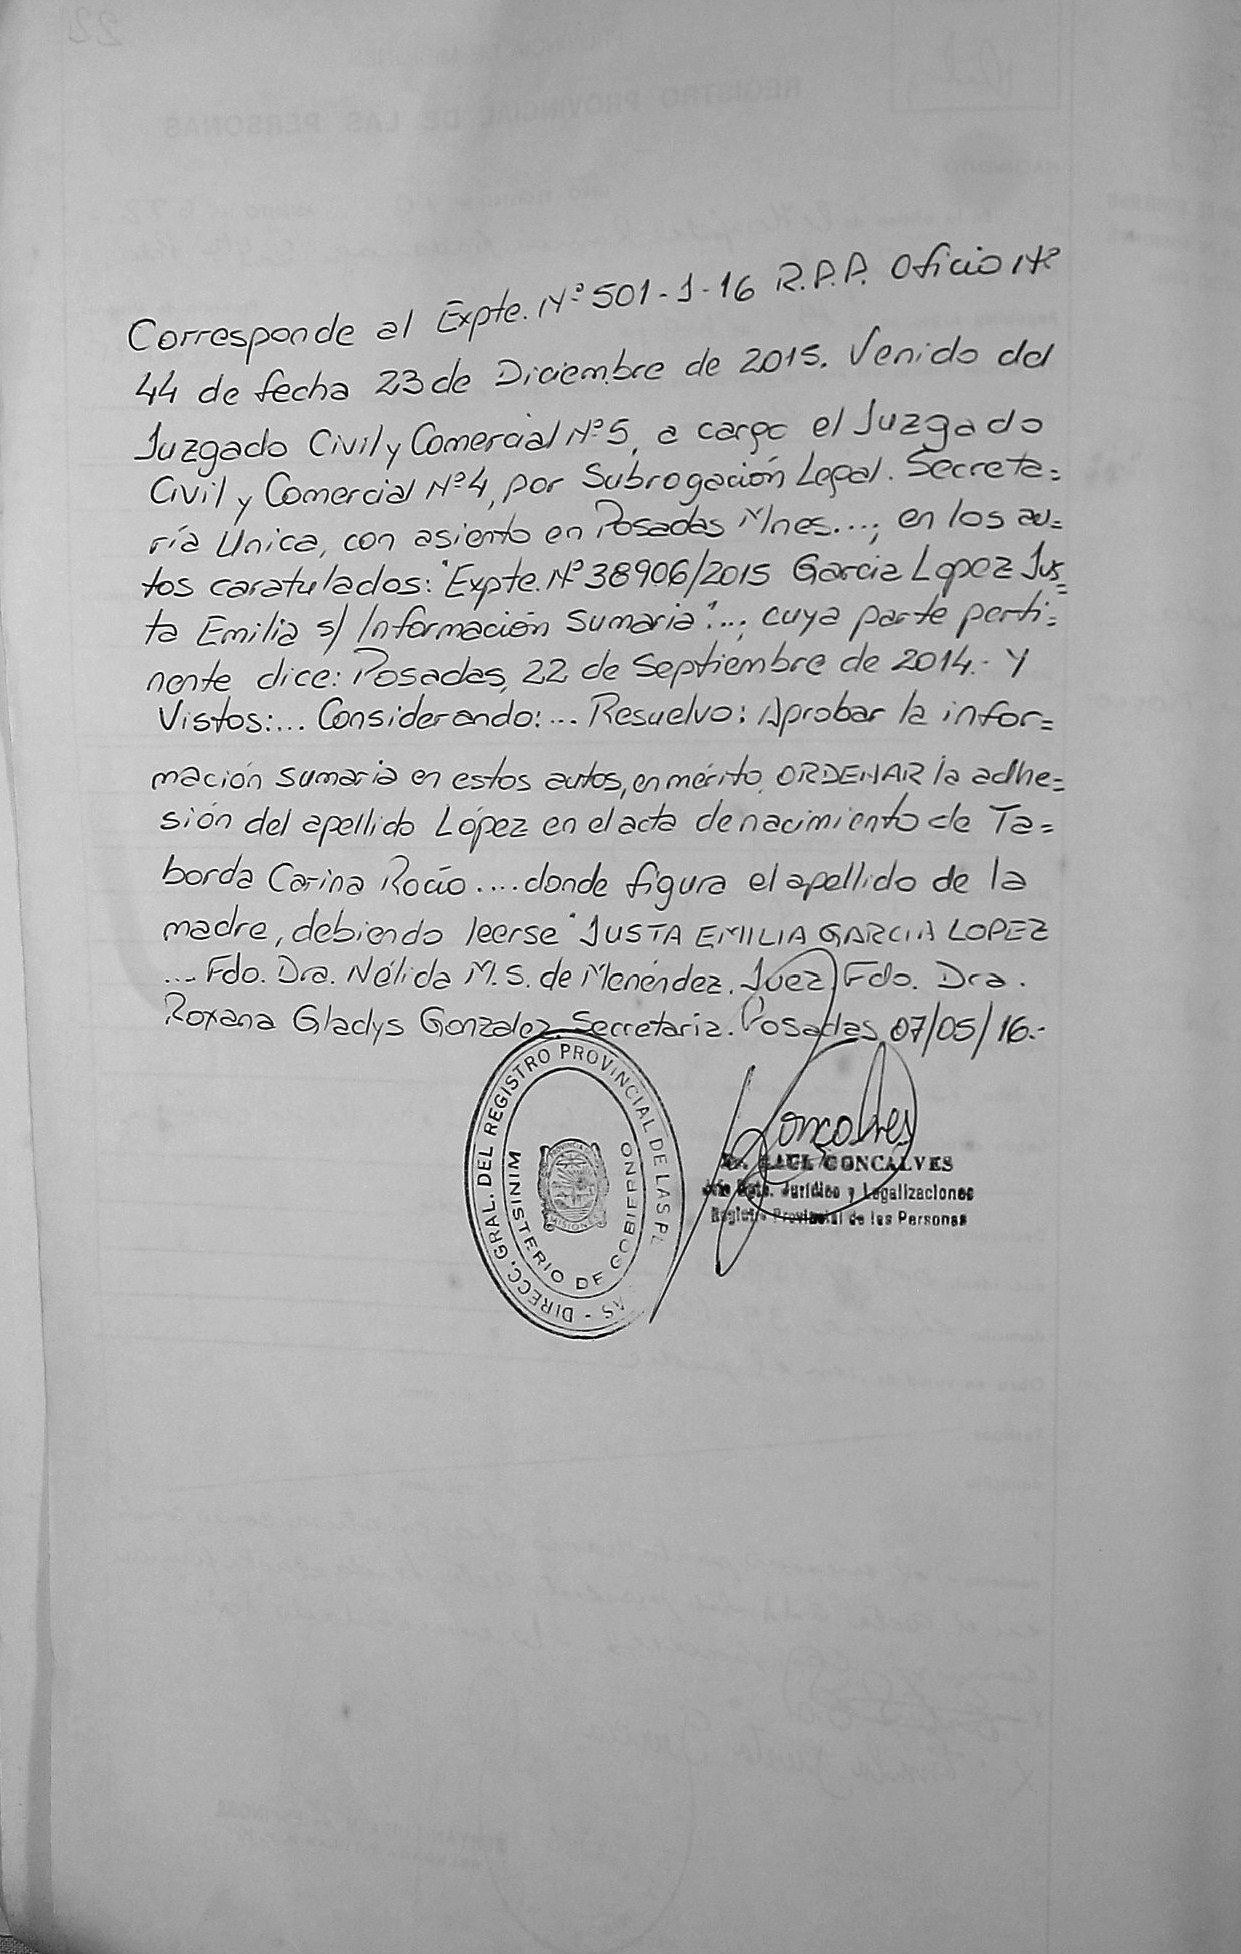 Corresponde al Expte. Nº 501-J-16 R.P.P. Oficio Nº
44 de fecha 23 de Diciembre de 2015. Venido del
Juzgado Civil y Comercial Nº 5, a cargo el Juzgado
Civil y Comercial Nº 4, por Subrogación Legal. Secreta=
ría Unica, con asiento en Posadas Mnes...; en los au=
tos caratulados: "Expte. Nº 38906/2015 Garcia Lopez Jus=
ta Emilia s/ Información Sumaria"...; cuya parte perti=
nente dice: Posadas, 22 de Septiembre de 2014.- Y
Vistos:... Considerando:... Resuelvo: Aprobar la infor=
mación sumaria en estos autos, en mérito, ORDENAR la adhe=
sión del apellido López en el acta de nacimiento de Ta=
borda Carina Rocio .... donde figura el apellido de la
madre, debiendo leerse "JUSTA EMILIA GARCIA LOPEZ
... Fdo. Dra. Nélida M.S. de Menéndez. Juez Fdo. Dra.
Roxana Gladys Gonzalez Secretaria. Posadas, 07/05/16.-
DIRECC. GRAL. DEL REGISTRO PROVINCIAL DE LAS
MINISTERIO DE GOBIERNO
MISIONES
Goncalves
Dr. RAUL GONCALVES
Jefe Dpto. Jurídico y Legalizaciones
Registro Provincial de las Personas